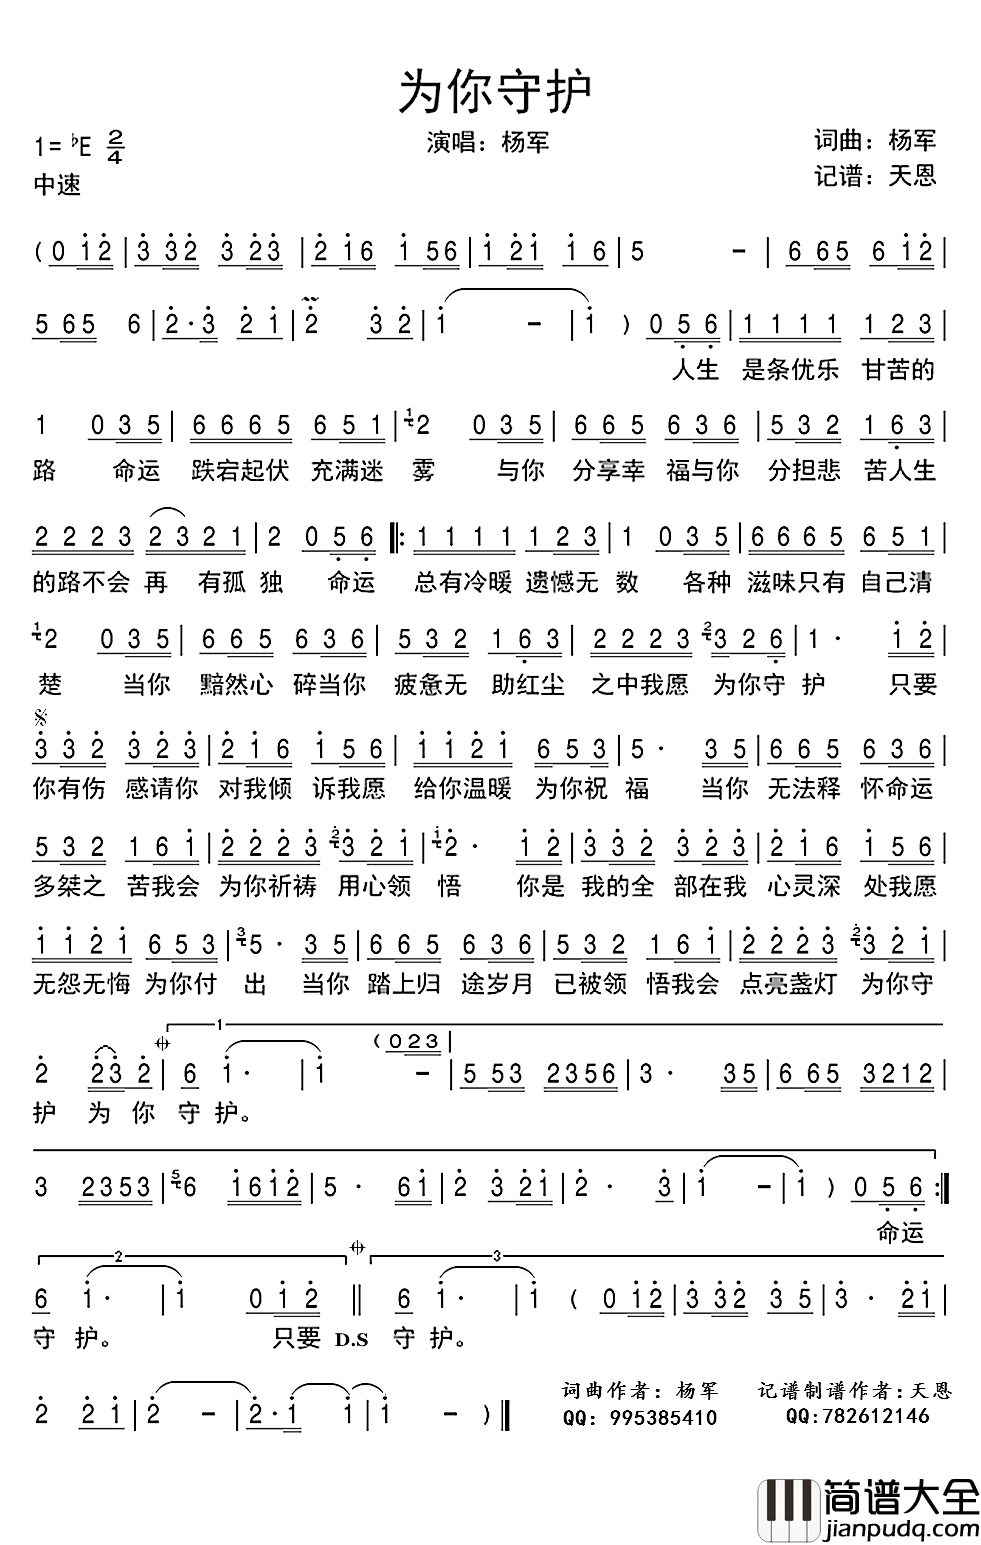 为你守护
1= ♭E 2/4 演唱：杨军 词曲：杨军
中速 记谱：天恩
( 0 1 2 | 3 3 2 3 2 3 | 2 1 6 1 5 6 | 1 2 1 1 6 | 5 - | 6 6 5 6 1 2 |
5 6 5 6 | 2 · 3 2 1 | 2 3 2 | 1 - | 1 ) 0 5 6 | 1 1 1 1 1 2 3 |
人生 是条优乐 甘苦的
1 0 3 5 | 6 6 6 5 6 5 1 | 1 2 0 3 5 | 6 6 5 6 3 6 | 5 3 2 1 6 3 |
路 命运 跌宕起伏 充满迷 雾 与你 分享幸 福与你 分担悲 苦人生
2 2 2 3 2 3 2 1 | 2 0 5 6 |: 1 1 1 1 1 2 3 | 1 0 3 5 | 6 6 6 5 6 5 1 |
的路不会 再 有孤 独 命运 总有冷暖 遗憾无 数 各种 滋味只有 自己清
1 2 0 3 5 | 6 6 5 6 3 6 | 5 3 2 1 6 3 | 2 2 2 3 2 3 2 6 | 1 · 1 2 |
楚 当你 黯然心 碎当你 疲惫无 助红尘 之中我愿 为你守 护 只要
3 3 2 3 2 3 | 2 1 6 1 5 6 | 1 1 2 1 6 5 3 | 5 · 3 5 | 6 6 5 6 3 6 |
你有伤 感请你 对我倾 诉我愿 给你温暖 为你祝 福 当你 无法释 怀命运
5 3 2 1 6 1 | 2 2 2 3 2 3 2 1 | 1 2 · 1 2 | 3 3 2 3 2 3 | 2 1 6 1 5 6 |
多桀之 苦我会 为你祈祷 用心领 悟 你是 我的全 部在我 心灵深 处我愿
1 1 2 1 6 5 3 | 3 5 · 3 5 | 6 6 5 6 3 6 | 5 3 2 1 6 1 | 2 2 2 3 2 3 2 1 |
无怨无悔 为你付 出 当你 踏上归 途岁月 已被领 悟我会 点亮盏灯 为你守
1
( 0 2 3 |
2 2 3 2 | 6 1 · | 1 - | 5 5 3 2 3 5 6 | 3 · 3 5 | 6 6 5 3 2 1 2 |
护 为 你 守 护。
3 2 3 5 3 | 5 6 1 6 1 2 | 5 · 6 1 | 2 3 2 1 | 2 · 3 | 1 - | 1 ) 0 5 6 :|
命运
2 3
6 1 · | 1 0 1 2 || 6 1 · | 1 ( 0 1 2 | 3 3 2 3 5 | 3 · 2 1 |
守 护。 只要 D.S 守 护。
2 2 1 | 2 - | 2 · 1 1 | 1 | 1 - ) ||
词曲作者：杨军 记谱制谱作者：天恩
QQ：995385410 QQ:782612146
简谱大全
jianpudq.com